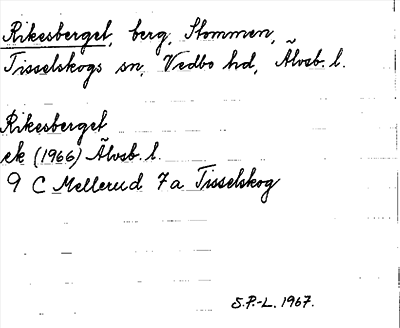 Rikesberget, berg, Stommen,
Tisselskogs sn, Vedbo hd, Älvsb. l.
Rikesberget
ek (1966) Älvsb. l.
9 C Mellerud 7a Tisselskog
S.P.-L. 1967.